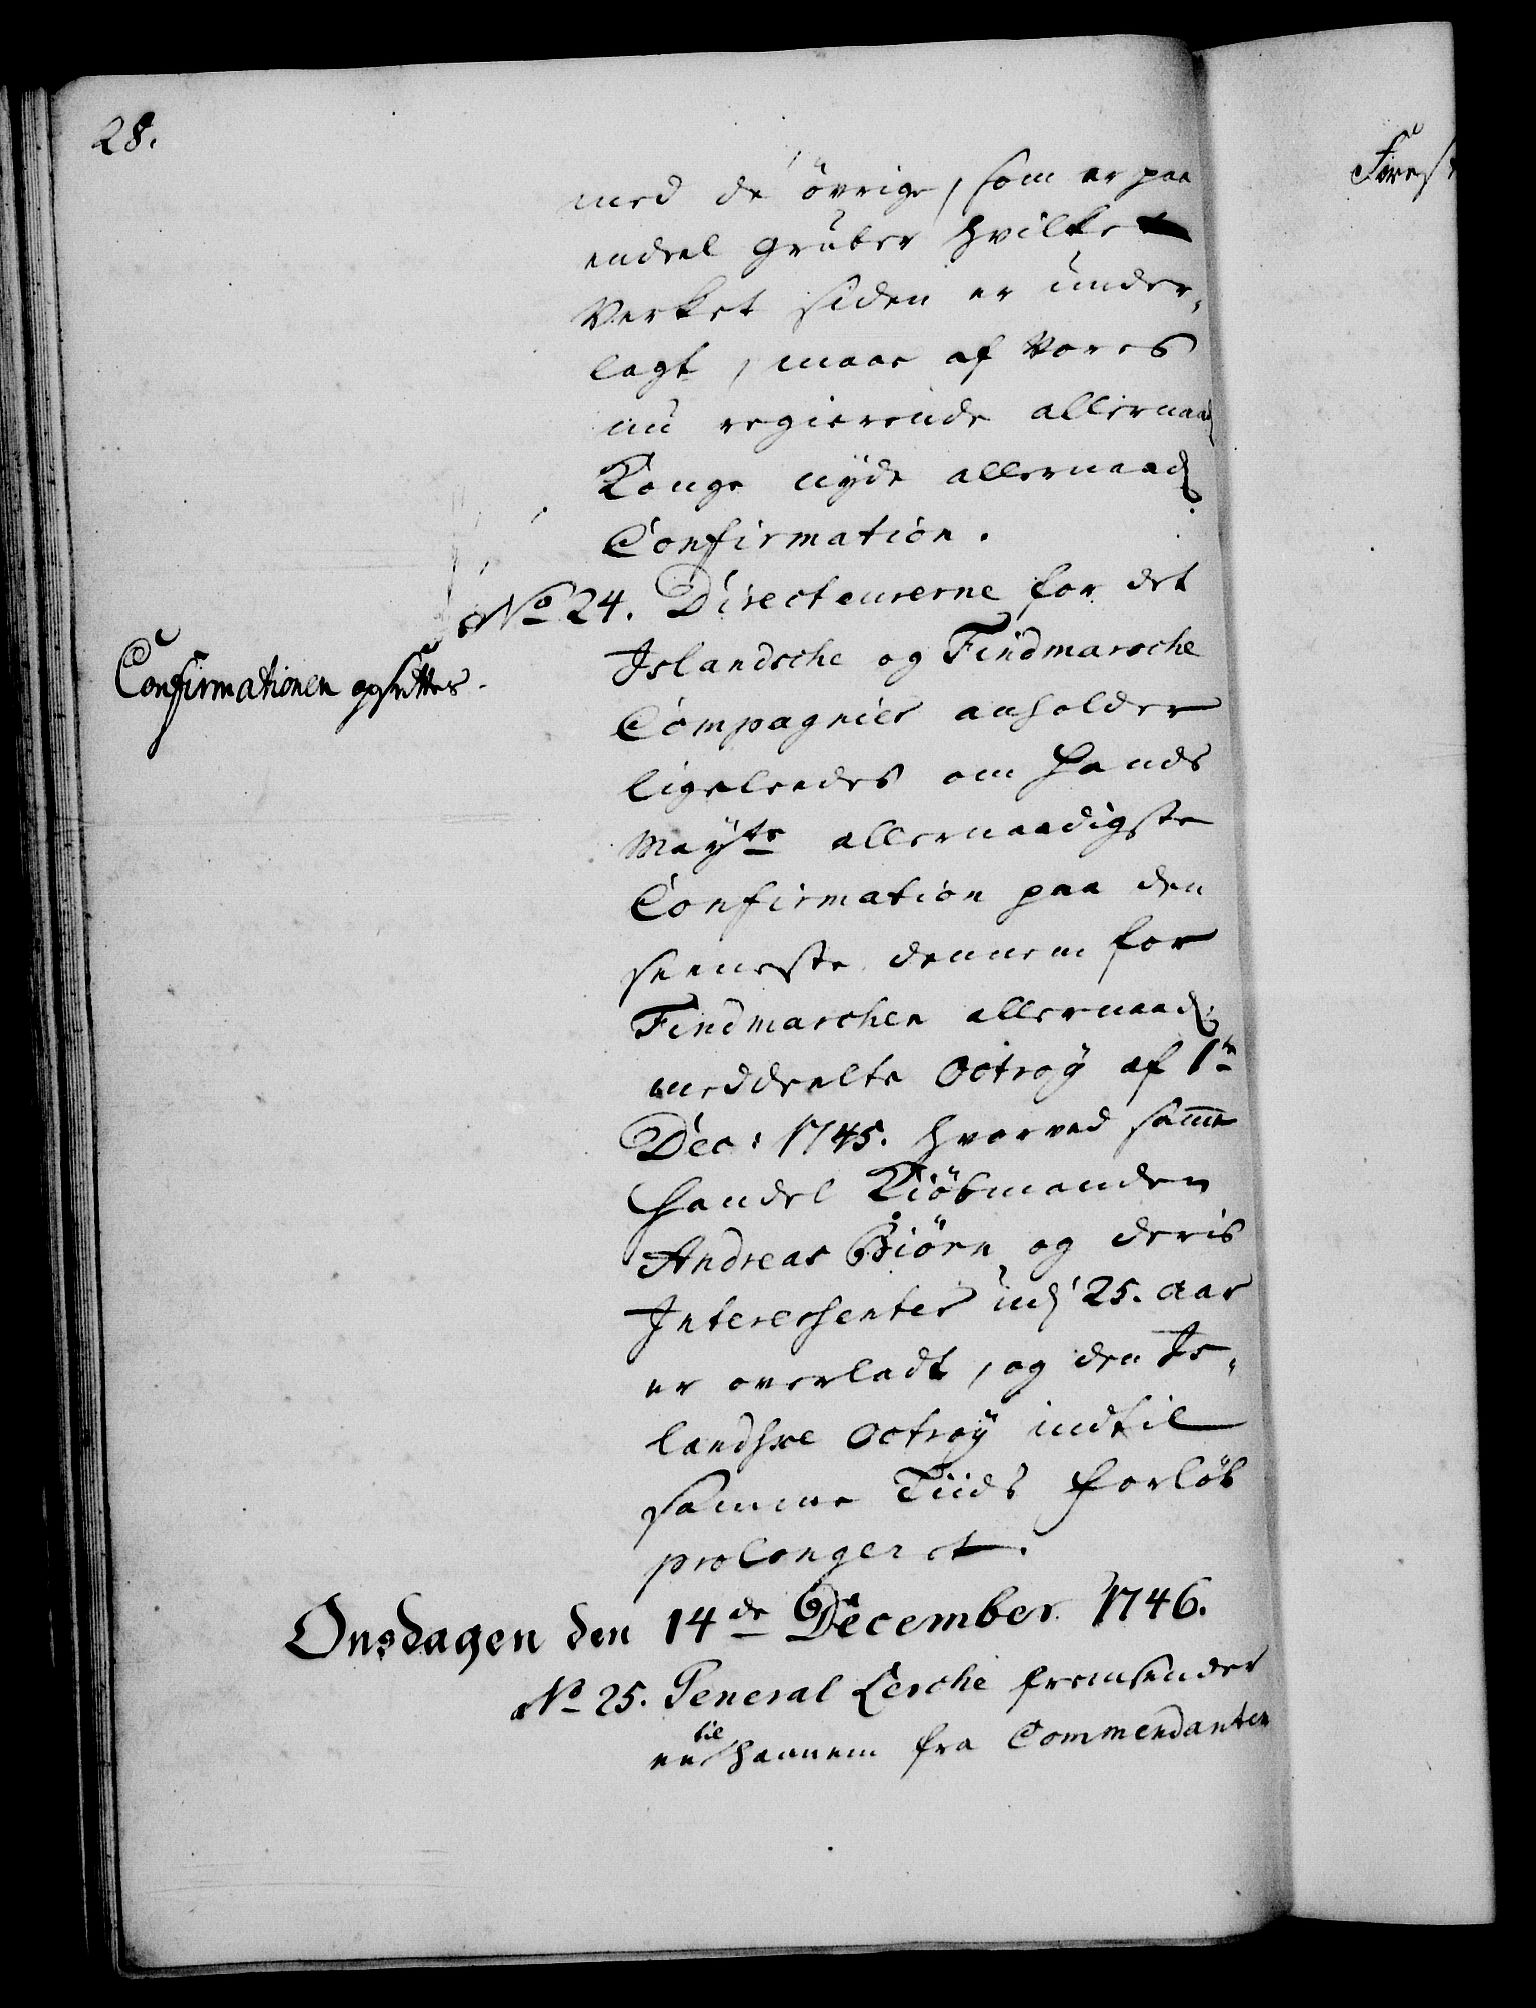 28.
med de övrige, som er paa
endeel gruber hvilke
Verket siden er under-
lagt, maae af Vores
nu regierende allernaad
Konge nyde allernaad
Confirmation.
No 24. Directeurerne for det
Confirmationen opsettes.
Islandsche og Findmarsche
Compagnies anholder
ligeleedes om Hands
Mayts allernaadigste
Confirmation paa den
seeneste dennem for
Findmarchen allernaad:
meddeelte Octroy af 1te
Dec: 1745. hvorved samme
Handel Kiöbmanden
Andreas Biörn og deris
Interessenter udj 25. aar
er overladt, og den Is-
landske Octroy indtil
samme Tiids forlöb
prolongeret.
Onsdagen den 14de December 1746.
No 25. General Lerche fremsender
en til hannem fra Commendanten